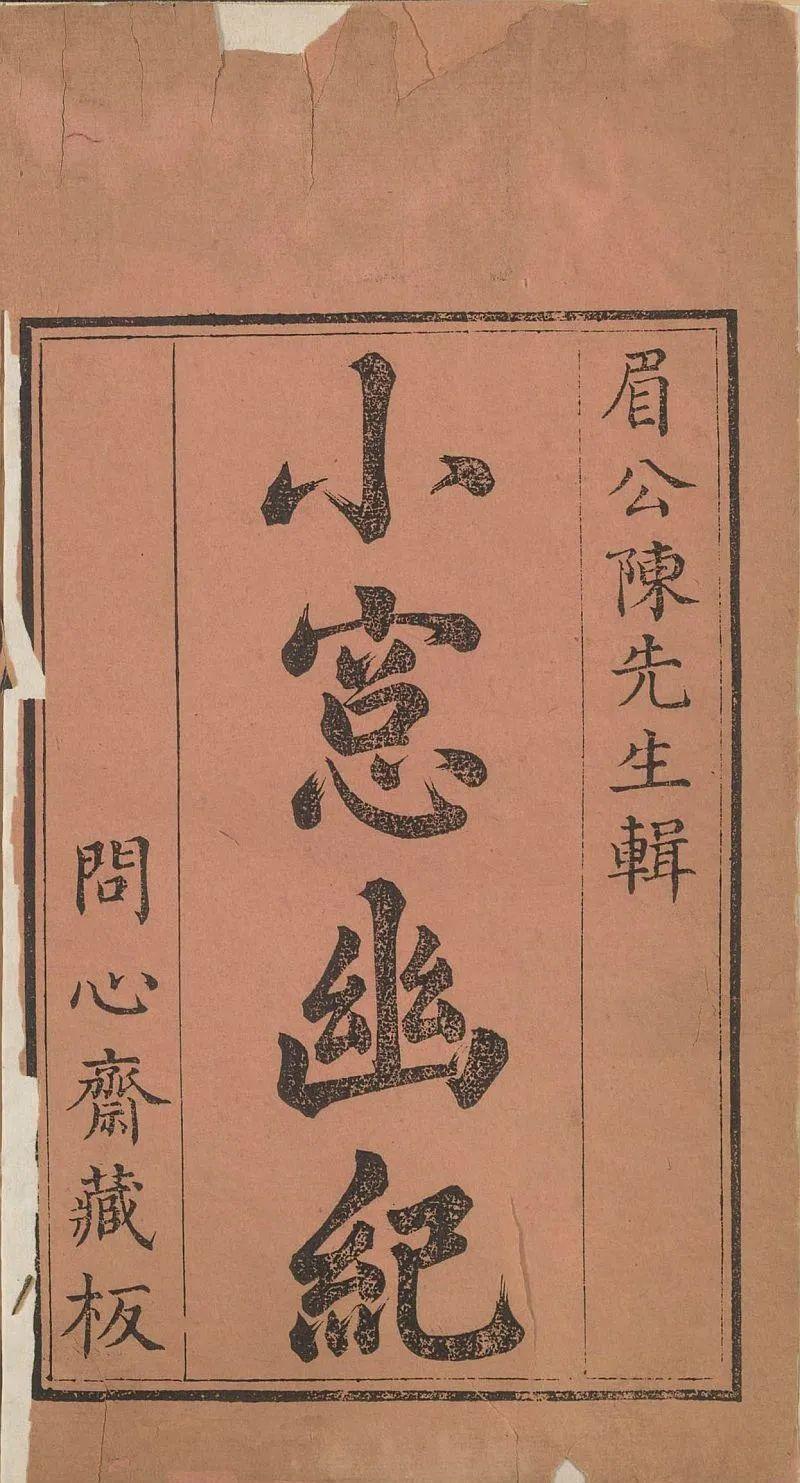 眉公陳先生輯
小窓幽紀
問心齋藏板